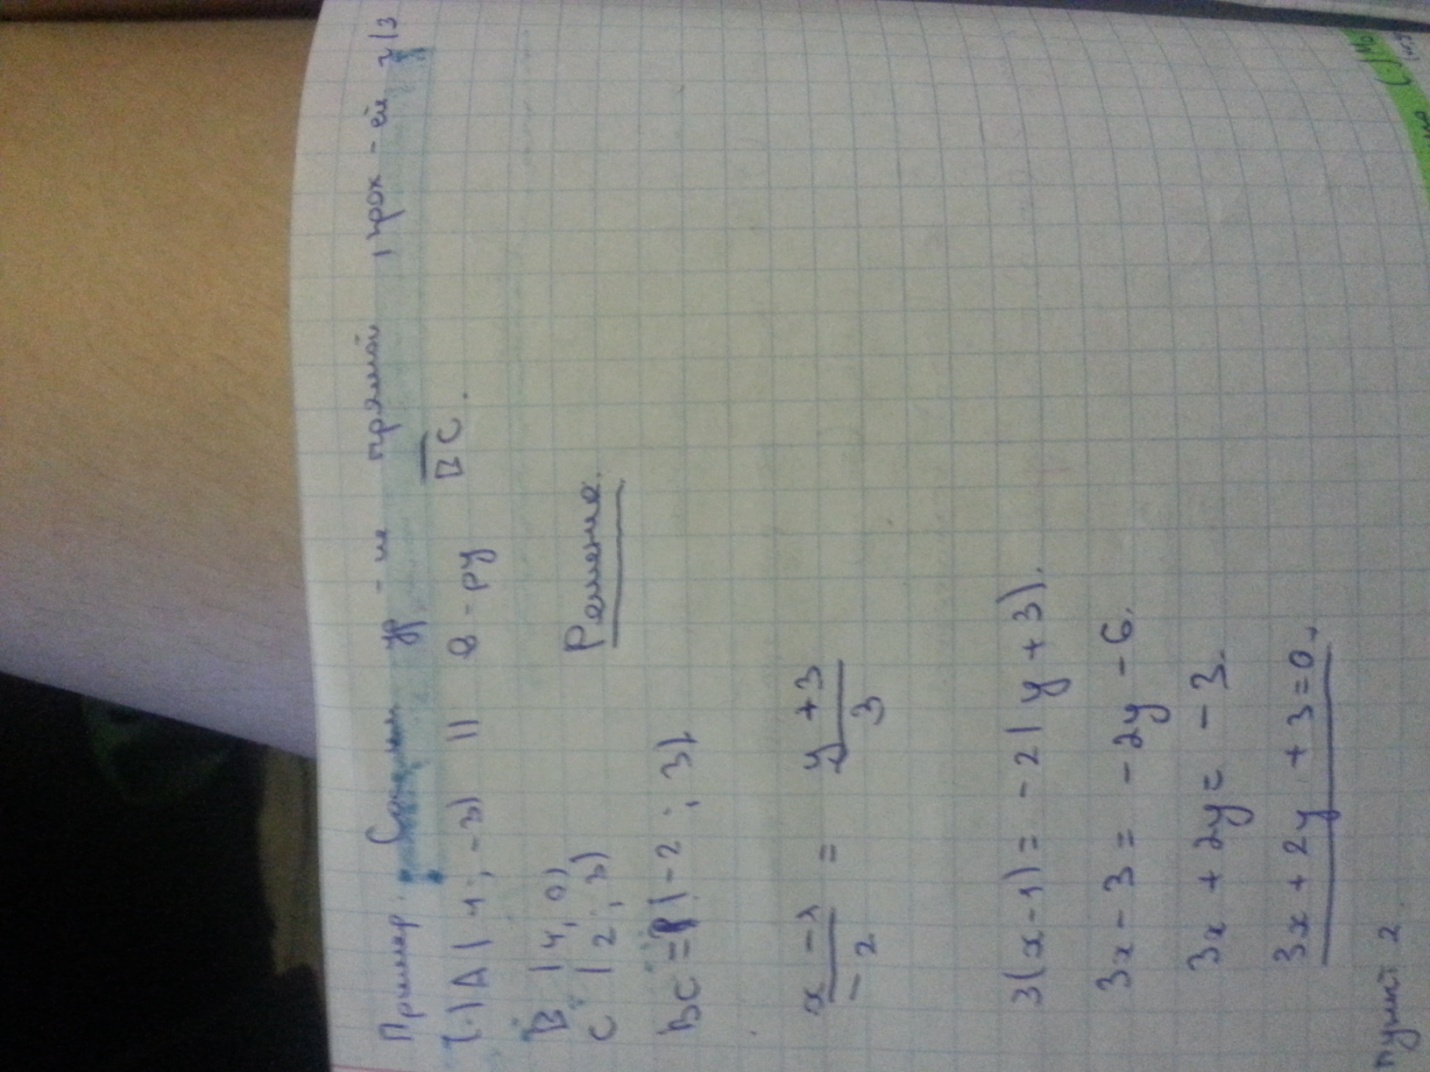 Пример. Составим ур-ие прямой, прох-ей ч/з
(·) A (1; -3) || в-ру BC.
B (4; 0)
C (2; 3)
Решение.
BC = (-2; 3).
x - 1 / -2 = y + 3 / 3
3(x-1) = -2(y+3).
3x - 3 = -2y - 6.
3x + 2y = -3.
3x + 2y + 3 = 0.
Пункт 2